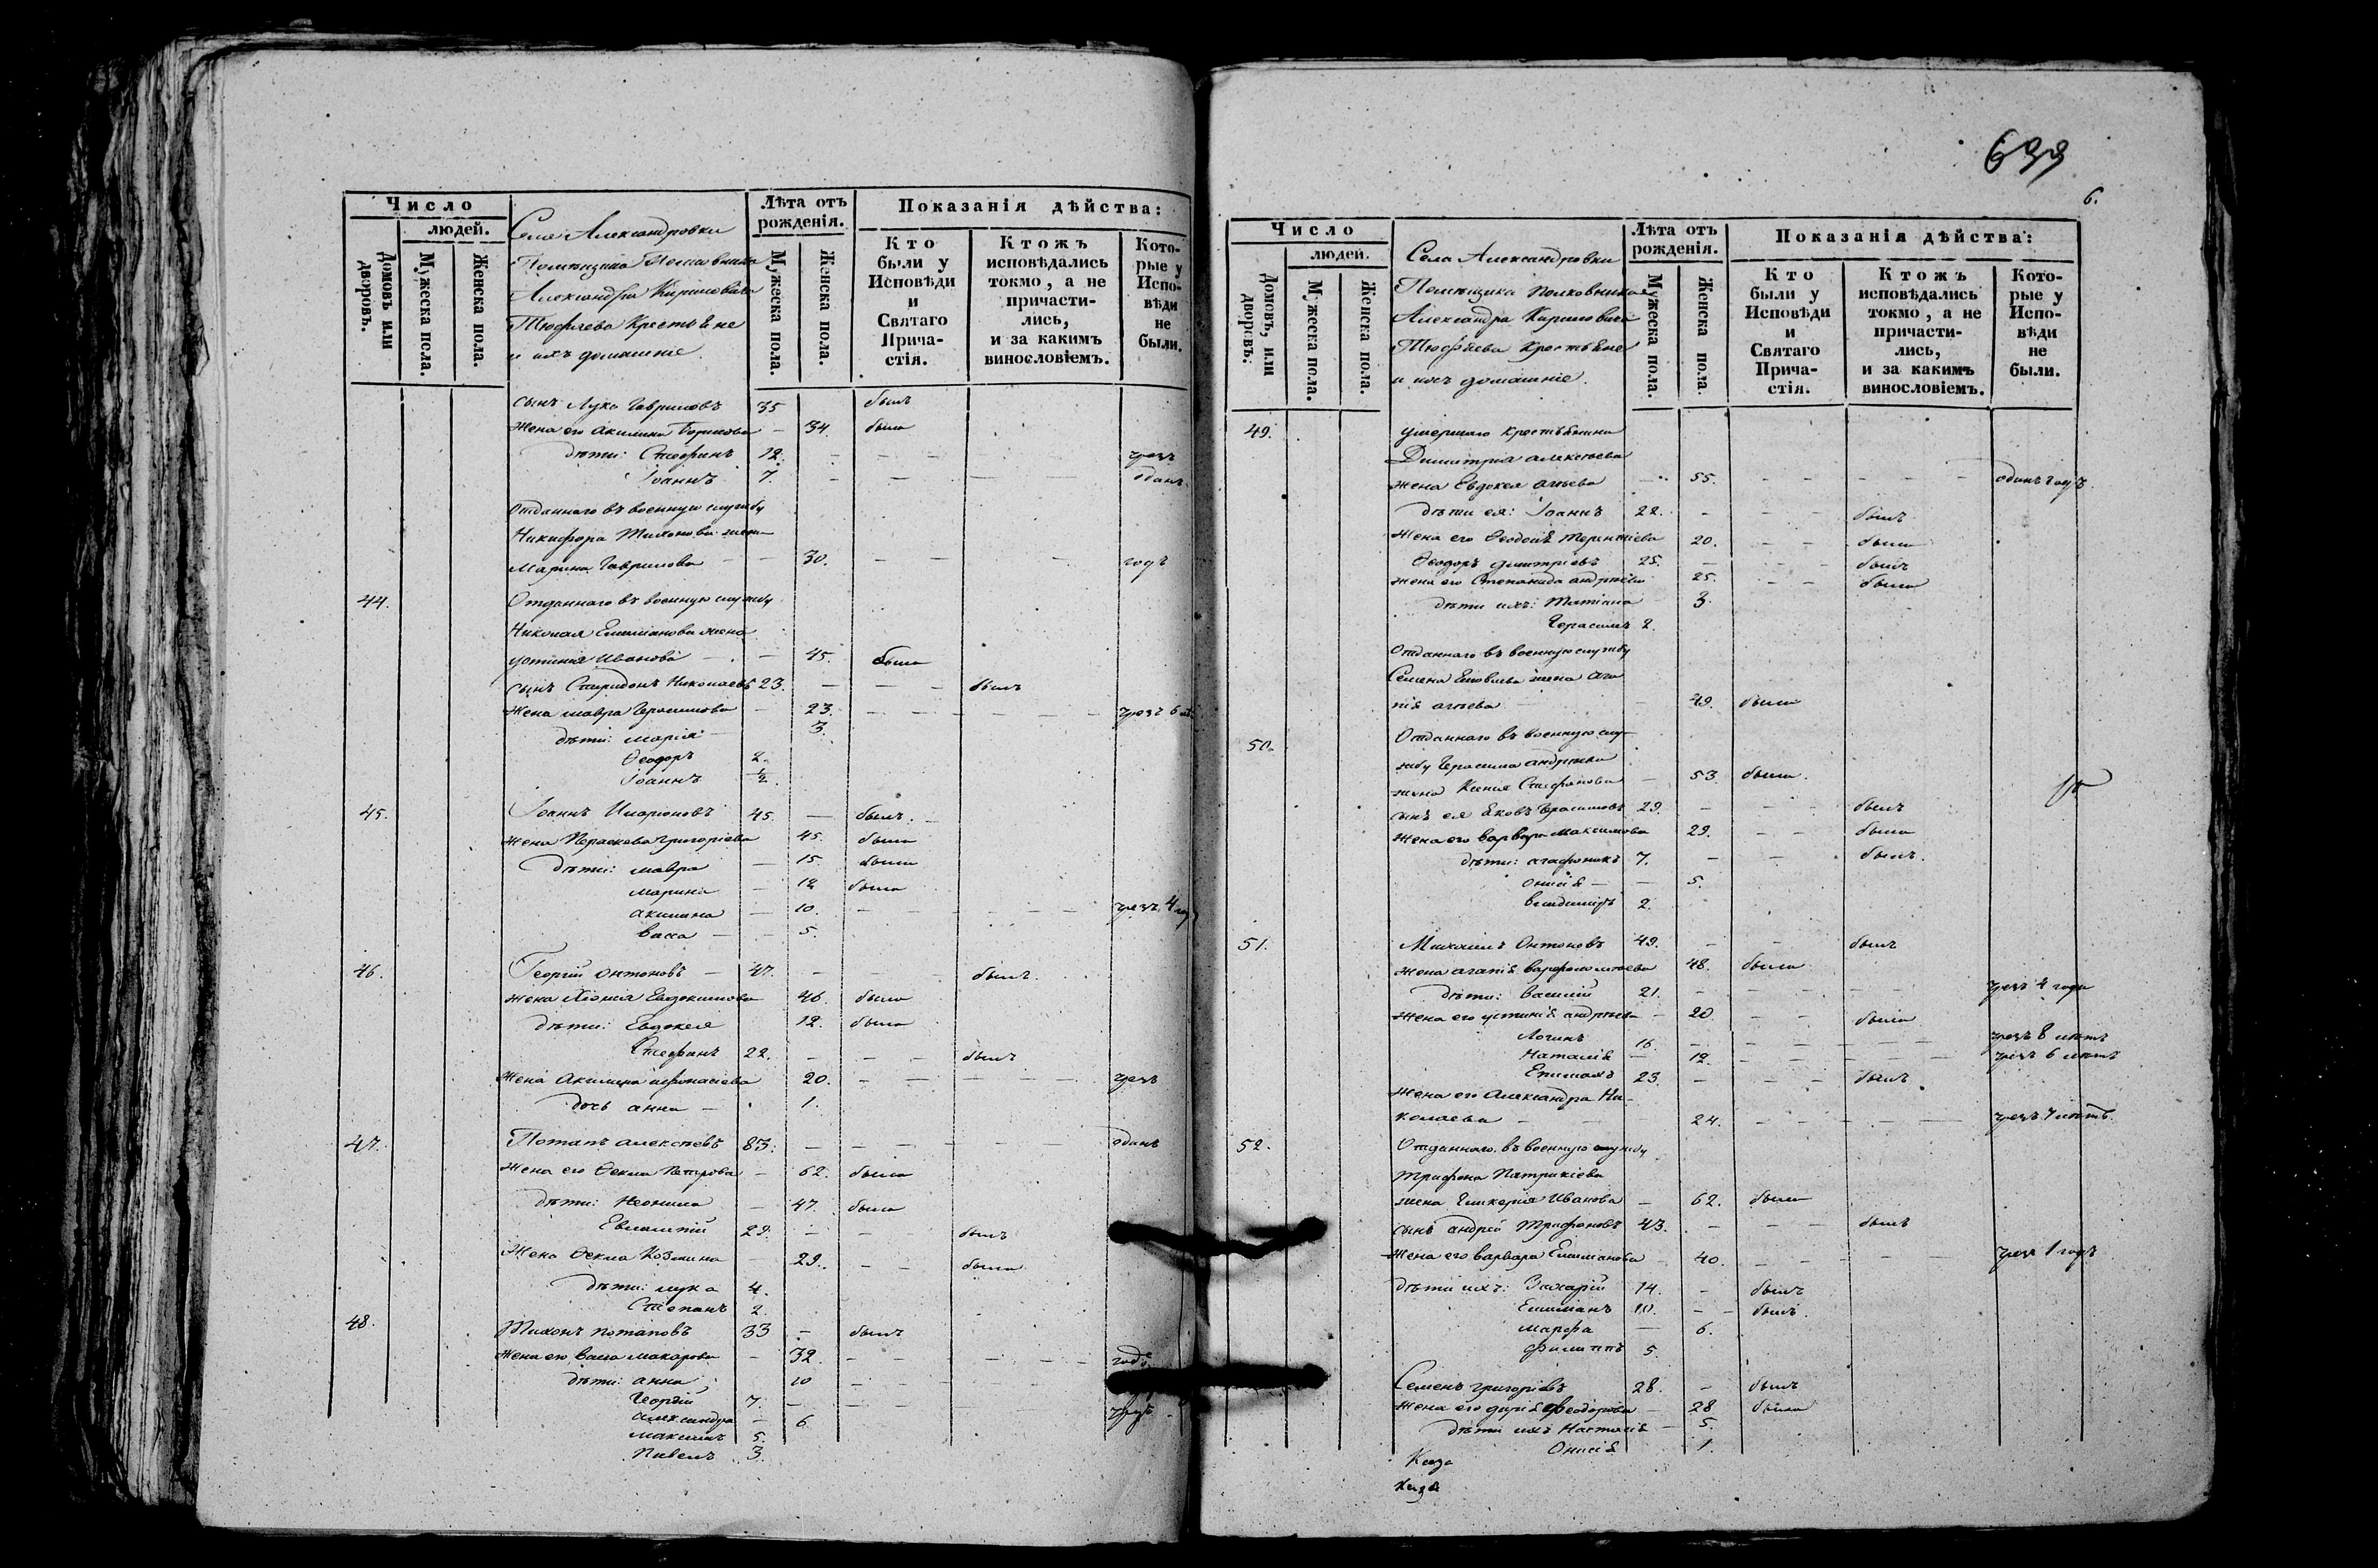 Число
людей.
Домовъ или дворовъ.
Мужеска пола.
Женска пола.
Села Александровки
Помѣщика Полковника
Александра Кириловича
Тюфяева Крестьяне
и ихъ домашніе.
Лѣта отъ рожденія.
Мужеска пола.
Женска пола.
Показанія дѣйства:
Кто были у Исповѣди и Святаго Причастія.
Ктожъ исповѣдались токмо, а не причастились, и за какимъ винословіемъ.
Которые у Исповѣди не были.
сынъ Лука Гавриловъ 35 былъ
жена его Акилина Борисова — 34. была
дѣти: Стефанъ 12. — — — чрезъ
Іоаннъ 7. — — — — одинъ
Отданнаго въ военную службу
Никифора Тихонова жена
Марина Гаврилова — — 30. — — — годъ
44. Отданнаго въ военную службу
Николая Емилианова жена
Устинія Иванова — — 45. была
сынъ Спиридонъ Николаевъ 23. — — — былъ
жена Мавра Герасимова — 23. — — — — — — чрезъ 6 лѣ
дѣти: Марія — 3.
Ѳеодоръ 2.
Іоаннъ ½.
45. Іоаннъ Иларіоновъ 45. — былъ. —
жена Параскева Григоріева 45. была
дѣти: Мавра — 15. была
Марина — 12 была
Акилина — 10. — — — — — — чрезъ 4 год
Васса — — 5.
46. Георгій Онтоновъ — 47. — — — былъ.
жена Хіонія Евдокимова 46. была
дѣти: Евдокея 12. была
Стефанъ 22. — — — былъ
жена Акилина Афонасіева 20. — — — — — чрезъ
дочь Анна — 1.
47. Потапъ Алексѣевъ 83. — — — — — — одинъ
жена его Ѳекла Петрова — 62. была
дѣти: Неонила — 47. была
Евлампій 29. — — былъ
жена Ѳекла Козмина — 29. — — была
дѣти: Лука 4.
Степанъ 2.
48. Тихонъ Потаповъ 33 — былъ
жена его Васса Макарова — 32. — — — — — годъ
дѣти: Анна 10 — — — — —
Георгій 7. — — — — —
Александра — 6. чрезъ
Максимъ 5.
Павелъ 3.
6.
Число
людей.
Домовъ, или дворовъ.
Мужеска пола.
Женска пола.
Села Александровки
Помѣщика Полковника
Александра Кириловича
Тюфяева Крестьяне
и ихъ домашніе.
Лѣта отъ рожденія.
Мужеска пола.
Женска пола.
Показанія дѣйства:
Кто были у Исповѣди и Святаго Причастія.
Ктожъ исповѣдались токмо, а не причастились, и за какимъ винословіемъ.
Которые у Исповѣди не были.
49. умершаго крестьянина
Димитрія Алексѣева
жена Евдокея — 55. — — — — — — одинъ годъ.
дѣти ея: Іоаннъ 22. — — — былъ
жена его Ѳеодосія Терентіева 20. — — была
Ѳеодоръ Димитріевъ 25. — — — былъ
жена его Степанида Андреева 25. — — была
дѣти ихъ: Татіана — 3.
Герасимъ 2.
Отданнаго въ военную службу
жена Ага
пія — 49. была
50. Отданнаго въ военную слу-
жбу Герасима Андреева
жена Ксенія Стефанова — 53. была.
сынъ ея Яковъ Герасимовъ 29. — — — былъ
жена его Варвара Максимова 29. — — была
дѣти: Агафоникъ 7. — — былъ.
Онисія — — 5.
Владимиръ 2.
51. Михаилъ Онтоновъ 49. — — былъ
жена Агапія Варфоломѣева 48. была
дѣти: Василій 21. — — — — — чрезъ 4 года
жена его Устинія Андреева — 20 — — была
Логинъ 16. — — — — — — чрезъ 8 лѣтъ
Наталія — 12. — — — — — чрезъ 6 лѣтъ
Епимахъ 23. — — — былъ
жена его Александра Ни-
колаева — — 24. — — — — — — чрезъ 7 лѣтъ.
52. Отданнаго въ военную службу
Трифона Патрикіева
жена Гликерія Иванова — 62. была
сынъ Андрей Трифоновъ 43. — — — былъ
жена его Варвара Емилианова 40. — — — — чрезъ 1 годъ
дѣти ихъ: Захарій 14. — былъ
Емиліанъ 10. — — былъ.
Марфа — 6.
Филиппъ 5.
Семенъ Григоріевъ 28. — былъ
жена его Дарія Ѳеодорова 28 была
дѣти ихъ Настасія — 5.
Онисія 1.